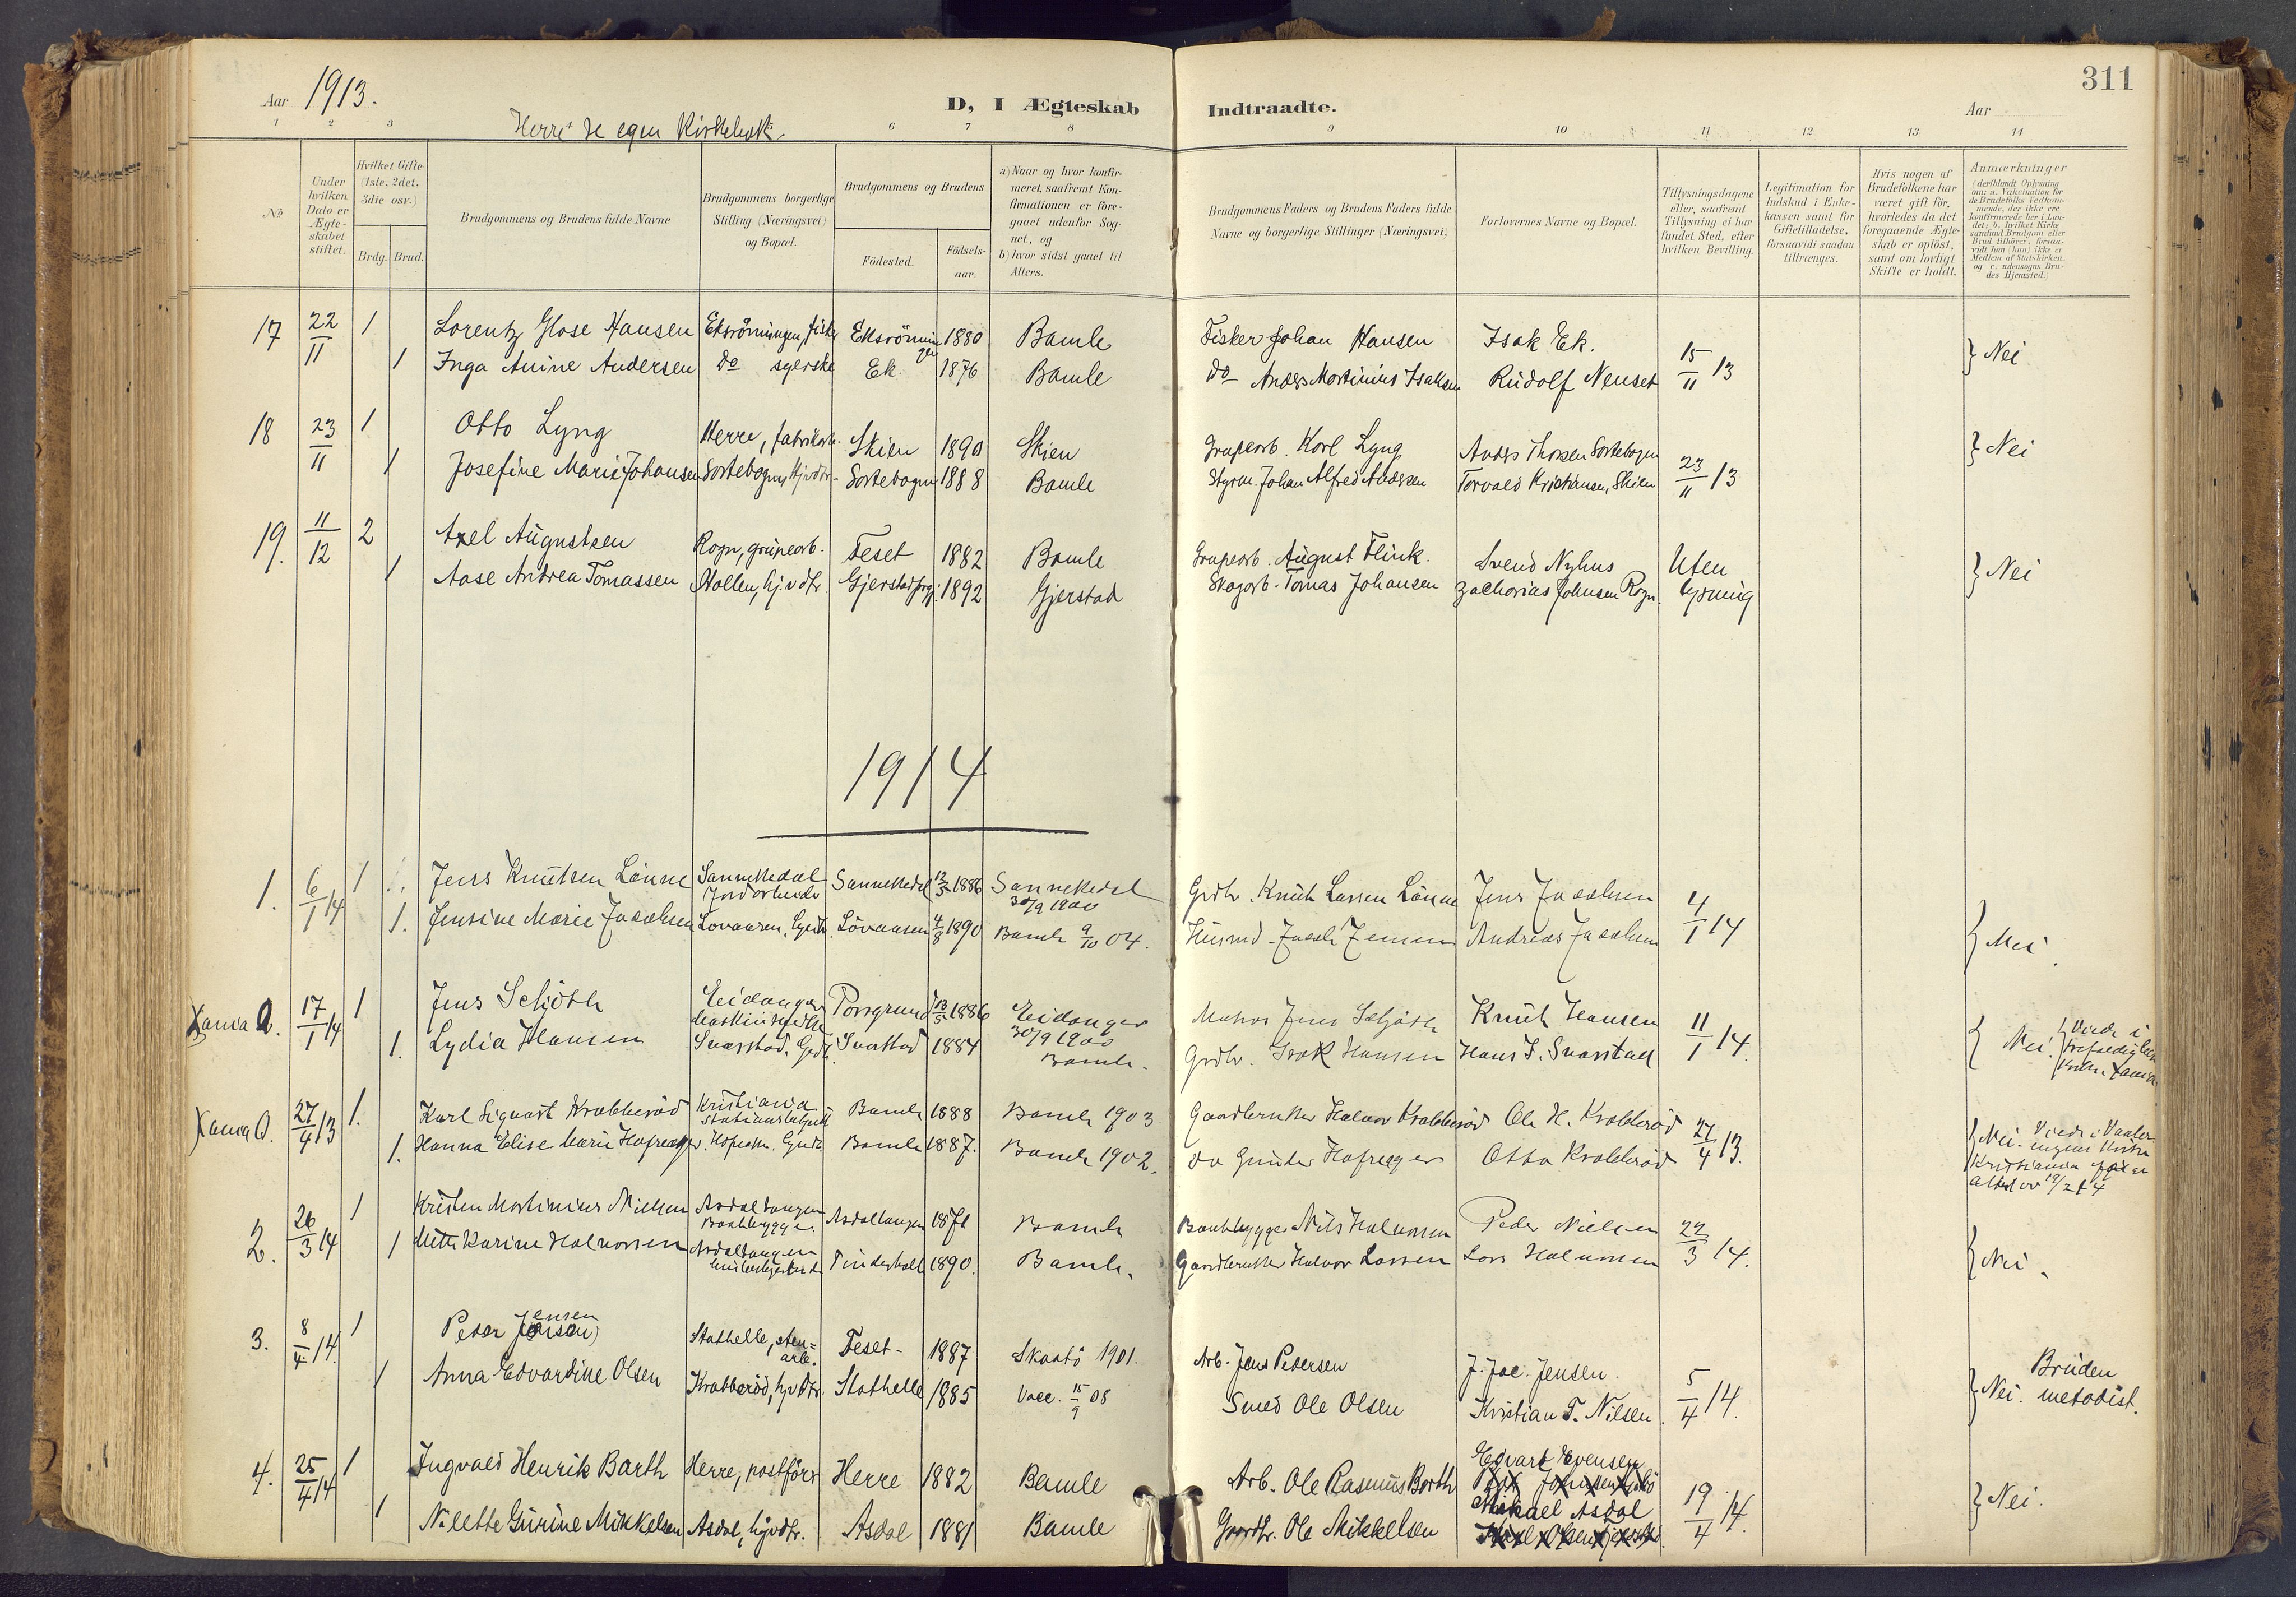 311
Aar 1913.
D, I Ægteskab Indtraadte.
Aar
Herre se egen Kirkebok.
1 2 3 6 7 8 9 10 11 12 13 14
No
Under hvilken Dato er Ægteskabet stiftet.
Hvilket Gifte (1ste, 2det, 3die osv.)
Brdg. Brud.
Brudgommens og Brudens fulde Navne
Brudgommens borgerlige Stilling (Næringsvei) og Bopæl.
Brudgommens og Brudens
Födested.
Födsels-aar.
a) Naar og hvor konfirmeret, saafremt Konfirmationen er foregaaet udenfor Sognet, og
b) hvor sidst gaaet til Alters.
Brudgommens Faders og Brudens Faders fulde Navne og borgerlige Stillinger (Næringsvei)
Forlovernes Navne og Bopæl.
Tillysningsdagene eller, saafremt Tillysning ei har fundet Sted, efter hvilken Bevilling.
Legitimation for Indskud i Enkekassen samt for Giftetilladelse, forsaavidt saadan tiltrænges.
Hvis nogen af Brudefolkene har været gift för, hvorledes da det foregaaende Ægteskab er oplöst, samt om lovligt Skifte er holdt.
Anmærkninger
17 22/11 1 Lorentz Glose Hansen Eksrömingen, fisker Eksrömingen 1880 Bamle Fisker Johan Hansen Isak Ek. 15/11 13 } Nei
1 Inga Anine Andersen do syerske Ek. 1876 Bamle do Anders Martinius Isaksen Rudolf Nenset
18 23/11 1 Otto Lyng Herre, fabrikarb. Skien 1890 Skien Grubearb. Karl Lyng Anders Thorsen Sortebogen 23/11 13 } Nei
1 Josefine Marie Johansen Sortebogen, Hjv.dtr. Sortebogen 1888 Bamle Styrm. Johan Alfred Andersen Torvald Kristiansen, Skien
19. 11/12 2 Axel Augustsen Rogn, grubearb. Feset 1882 Bamle Grubearb. August Flink. Svend Nyhus Uten lysning } Nei
1 Aase Andrea Tomassen Stollen, hj.v.dtr. Gjerstad prgj. 1892 Gjerstad Skogarb. Tomas Johansen Zacharias Johnsen Rogn.
1914
1. 6/1 14 1 Jens Knutsen Lönne Sannekedal Jordarbeider Sannekedal 12/3 1886 Sannekedal 30/9 1900 Grdbr. Knut Larsen Lönne Jens Jacobsen 4/1 14 } Nei.
1. Jensine Marie Jacobsen Lövaasen. Lövaasen 4/8 1890 Bamle 9/10 04. Husmd. Jacob Jensen Andreas Jacobsen
Xania A. 17/1 14 1 Jens Schjöth Eidanger Porsgrund 1886 Eidanger 30/9 1900 Matros Jens Schjöth Knut Hansen 11/1 14. } Nei. Viede i Trefoldighets
1. Lydia Hansen Svarstad. Svarstad 1884 Bamle. Grdbr. Isak Hansen Hans I. Svarstad
Xania A. 27/4 13 1. Karl Sigvart Krabberöd Kristiania Bamle 1888 Bamle 1903 Gaardbruker Halvor Krabberöd Ole H. Krabberöd 27/4 13. } Nei. Viede i Vaalerengens Kirke Kristiania
1. Hanna Elise Marie Hafreager Bamle 1887. Bamle 1902. do Gunder Hafreager Otto Krabberöd
2. 26/3 14 1 Kristen Martinius Nielsen Asdaltangen Baatbygger Asdaltangen 1871 Bamle Baatbygger Nils Halvorsen Peder Nielsen 22/3 14. } Nei.
1 Mette Karine Halvorsen Asdaltangen Findeshall 1890. Bamle. Gaardbruker Halvor Larsen Lars Halvorsen
3. 8/4 14. 1 Peder Jensen Stathelle, stenarb. Feset 1887 Skaatö 1901. Arb. Jens Pedersen J. Jac. Jensen. 5/4 14. } Nei. Bruden metodist.
1 Anna Edvardine Olsen Krabberöd, hjv.dtr. Stathelle 1885 Vacc. 15/9 08 Smed Ole Olsen Kristian T. Nilsen.
4. 25/4 14 1 Ingvald Henrik Barth Herre, postförer Herre 1882 Bamle Arb. Ole Rasmus Barth Edvart Evensen 19/4 14. } Nei.
1 Nilette Gurine Mikkelsen Asdal, hjv.dtr. Asdal 1881 Bamle Gaardbr. Ole Mikkelsen Mikael Asdal